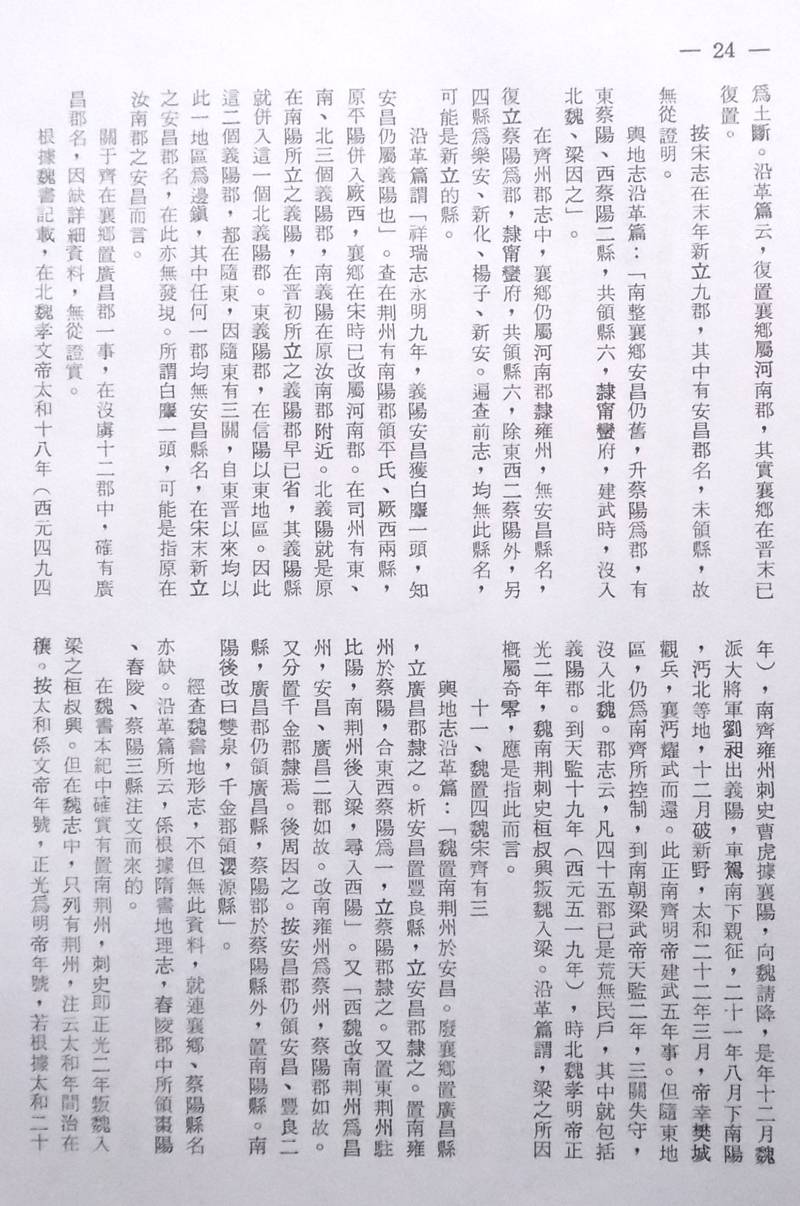 — 24 —
爲土斷。沿革篇云，復置襄鄉屬河南郡，其實襄鄉在晋末已
復置。
按宋志在末年新立九郡，其中有安昌郡名，未領縣，故
無從證明。
輿地志沿革篇：「南整襄鄉安昌仍舊，升蔡陽爲郡，有
東蔡陽、西蔡陽二縣，共領縣六，隸甯蠻府，建武時，沒入
北魏、梁因之」。
在齊州郡志中，襄鄉仍屬河南郡隸雍州，無安昌縣名，
復立蔡陽爲郡，隸甯蠻府，共領縣六，除東西二蔡陽外，另
四縣爲樂安、新化、楊子、新安。遍查前志，均無此縣名，
可能是新立的縣。
沿革篇謂「祥瑞志永明九年，義陽安昌獲白麞一頭，知
安昌仍屬義陽也」。查在荆州有南陽郡領平氏、厥西兩縣，
原平陽併入厥西，襄鄉在宋時已改屬河南郡。在司州有東、
南、北三個義陽郡，南義陽在原汝南郡附近。北義陽就是原
在南陽所立之義陽，在晋初所立之義陽郡早已省，其義陽縣
就併入這一個北義陽郡。東義陽郡，在信陽以東地區。因此
這二個義陽郡，都在隨東，因隨東有三關，自東晋以來均以
此一地區爲邊鎮，其中任何一郡均無安昌縣名，在宋末新立
之安昌郡名，在此亦無發現。所謂白麞一頭，可能是指原在
汝南郡之安昌而言。
關于齊在襄鄉置廣昌郡一事，在沒虜十二郡中，確有廣
昌郡名，因缺詳細資料，無從證實。
根據魏書記載，在北魏孝文帝太和十八年（西元四九四
年），南齊雍州刺史曹虎據襄陽，向魏請降，是年十二月魏
派大將軍劉昶出義陽，車駕南下親征，二十一年八月下南陽
，沔北等地，十二月破新野，太和二十二年三月，帝幸樊城
觀兵，襄沔耀武而還。此正南齊明帝建武五年事。但隨東地
區，仍爲南齊所控制，到南朝梁武帝天監二年，三關失守，
沒入北魏。郡志云，凡四十五郡已是荒無民戶，其中就包括
義陽郡。到天監十九年（西元五一九年），時北魏孝明帝正
光二年，魏南荆刺史桓叔興叛魏入梁。沿革篇謂，梁之所因
概屬奇零，應是指此而言。
十一、魏置四魏宋齊有三
輿地志沿革篇：「魏置南荆州於安昌。廢襄鄉置廣昌縣
，立廣昌郡隸之。析安昌置豐良縣，立安昌郡隸之。置南雍
州於蔡陽，合東西蔡陽爲一，立蔡陽郡隸之。又置東荆州駐
比陽，南荆州後入梁，尋入西陽」。又「西魏改南荆州爲昌
州，安昌、廣昌二郡如故。改南雍州爲蔡州，蔡陽郡如故。
又分置千金郡隸焉。後周因之。按安昌郡仍領安昌、豐良二
縣，廣昌郡仍領廣昌縣，蔡陽郡於蔡陽縣外，置南陽縣。南
陽後改曰雙泉，千金郡領瀴源縣」。
經查魏書地形志，不但無此資料，就連襄鄉、蔡陽縣名
亦缺。沿革篇所云，係根據隋書地理志，舂陵郡中所領棗陽
、舂陵、蔡陽三縣注文而來的。
在魏書本紀中確實有置南荆州，刺史即正光二年叛魏入
梁之桓叔興。但在魏志中，只列有荆州，注云太和年間治在
穰。按太和係文帝年號，正光爲明帝年號，若根據太和二十